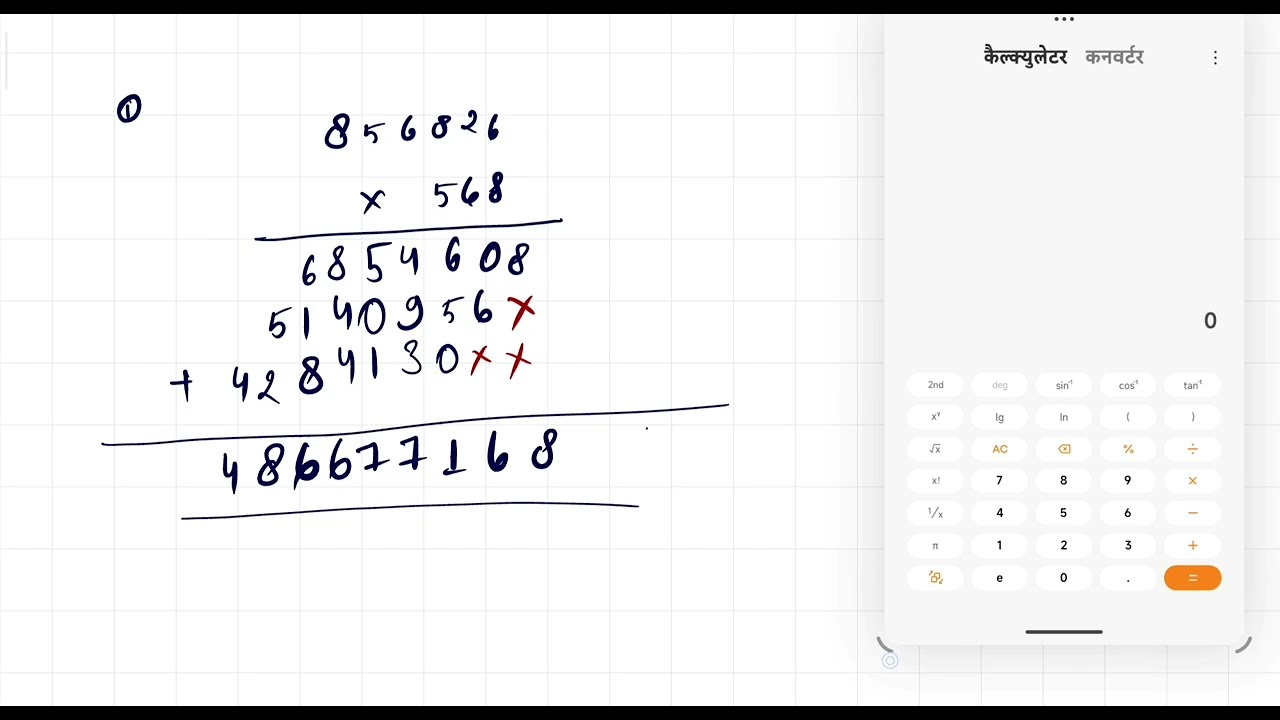 ①
856826
× 568
6854608
5140956×
+ 4284130××
486677168
...
कैल्क्युलेटर कनवर्टर ⋮
0
2nd deg sin⁻¹ cos⁻¹ tan⁻¹
xʸ lg ln ( )
√x AC ⌫ % ÷
x! 7 8 9 ×
¹/x 4 5 6 −
π 1 2 3 +
e 0 . =